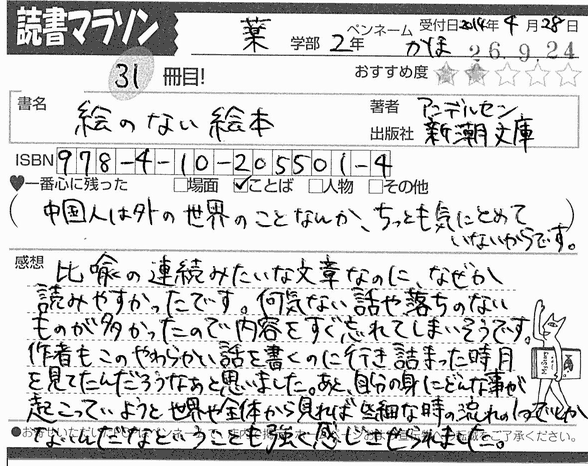 読書マラソン
薬 学部 2年 ペンネーム かほ 受付日2014年 4月28日
26.9.24
31 冊目! おすすめ度 ★★☆☆☆
書名 絵のない絵本 著者 アンデルセン
出版社 新潮文庫
ISBN 978-4-10-205501-4
♥一番心に残った □場面 ☑ことば □人物 □その他
(中国人は外の世界のことなんか、ちっとも気にとめて
いないからです。)
感想 比喩の連続みたいな文章なのに、なぜか
読みやすかったです。何気ない話や落ちのない
ものが多かったので内容をすぐ忘れてしまいそうです。
作者もこのやわらかい話を書くのに行き詰まった時月
を見てたんだろうなぁと思いました。あと、自分の身にどんな事が
起こっていようと世界や全体から見れば些細な時の流れの1つでしか
ないんだなということも強く感じさせられました。